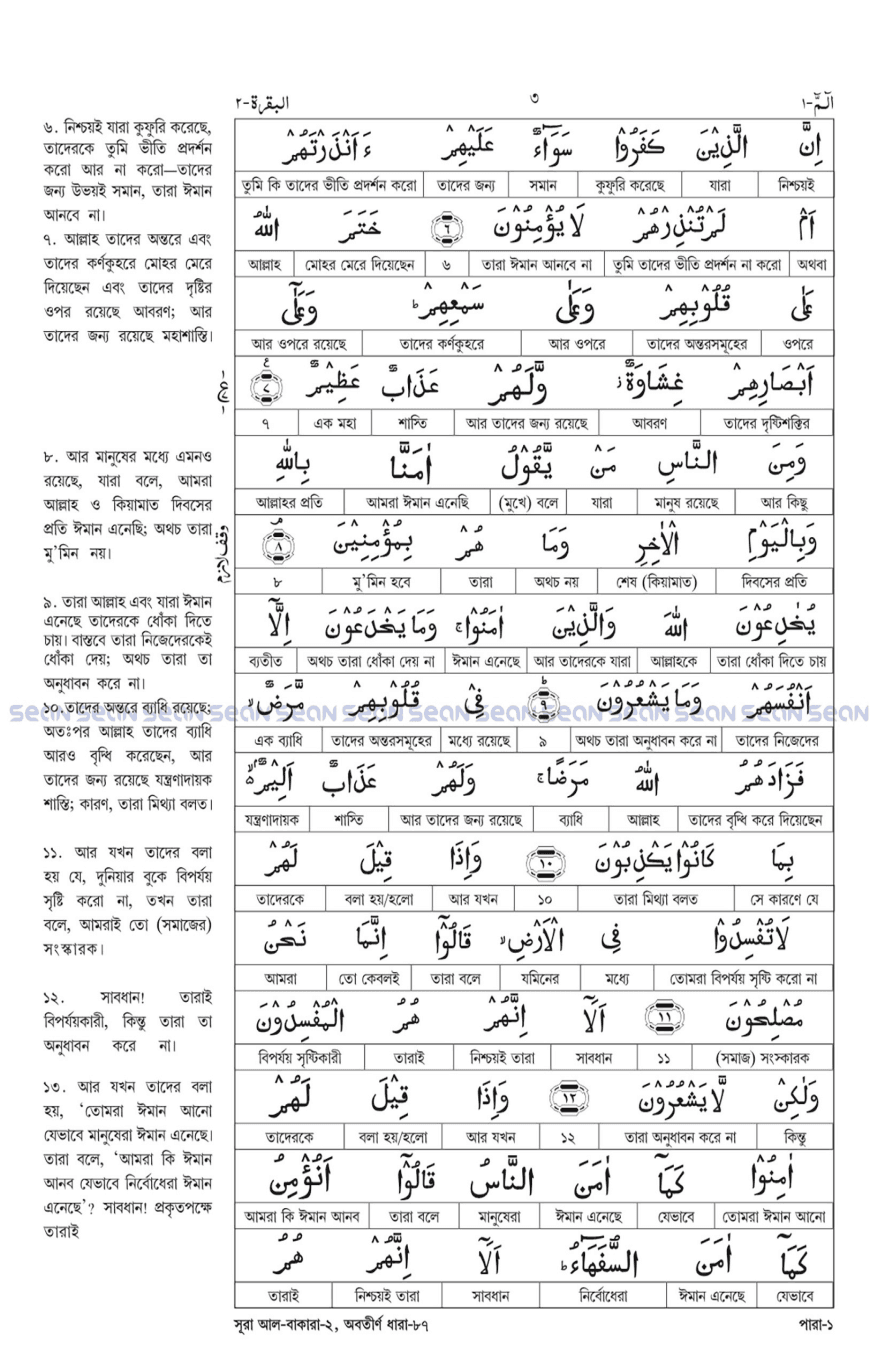 البقرة-٢ ٣ الٓمّٓ-١
৬. নিশ্চয়ই যারা কুফুরি করেছে,
তাদেরকে তুমি ভীতি প্রদর্শন
করো আর না করো—তাদের
জন্য উভয়ই সমান, তারা ঈমান
আনবে না।
৭. আল্লাহ তাদের অন্তরে এবং
তাদের কর্ণকুহরে মোহর মেরে
দিয়েছেন এবং তাদের দৃষ্টির
ওপর রয়েছে আবরণ; আর
তাদের জন্য রয়েছে মহাশাস্তি।
৮. আর মানুষের মধ্যে এমনও
রয়েছে, যারা বলে, আমরা
আল্লাহ ও কিয়ামাত দিবসের
প্রতি ঈমান এনেছি; অথচ তারা
মু'মিন নয়।
৯. তারা আল্লাহ এবং যারা ঈমান
এনেছে তাদেরকে ধোঁকা দিতে
চায়। বাস্তবে তারা নিজেদেরকেই
ধোঁকা দেয়; অথচ তারা তা
অনুধাবন করে না।
১০.তাদের অন্তরে ব্যাধি রয়েছে;
অতঃপর আল্লাহ তাদের ব্যাধি
আরও বৃদ্ধি করেছেন, আর
তাদের জন্য রয়েছে যন্ত্রণাদায়ক
শাস্তি; কারণ, তারা মিথ্যা বলত।
১১. আর যখন তাদের বলা
হয় যে, দুনিয়ার বুকে বিপর্যয়
সৃষ্টি করো না, তখন তারা
বলে, আমরাই তো (সমাজের)
সংস্কারক।
১২. সাবধান! তারাই
বিপর্যয়কারী, কিন্তু তারা তা
অনুধাবন করে না।
১৩. আর যখন তাদের বলা
হয়, 'তোমরা ঈমান আনো
যেভাবে মানুষেরা ঈমান এনেছে।
তারা বলে, 'আমরা কি ঈমান
আনব যেভাবে নির্বোধেরা ঈমান
এনেছে'? সাবধান! প্রকৃতপক্ষে
তারাই
اِنَّ الَّذِيْنَ كَفَرُوْا سَوَآءٌ عَلَيْهِمْ ءَاَنْذَرْتَهُمْ
তুমি কি তাদের ভীতি প্রদর্শন করো তাদের জন্য সমান কুফুরি করেছে যারা নিশ্চয়ই
اَمْ لَمْ تُنْذِرْهُمْ لَا يُؤْمِنُوْنَ ٦ خَتَمَ اللّٰهُ
আল্লাহ মোহর মেরে দিয়েছেন ৬ তারা ঈমান আনবে না তুমি তাদের ভীতি প্রদর্শন না করো অথবা
عَلٰى قُلُوْبِهِمْ وَعَلٰى سَمْعِهِمْ ؕ وَعَلٰٓى
আর ওপরে রয়েছে তাদের কর্ণকুহরে আর ওপরে তাদের অন্তরসমূহের ওপরে
اَبْصَارِهِمْ غِشَاوَةٌ ؗ وَّلَهُمْ عَذَابٌ عَظِيْمٌ ٧
৭ এক মহা শাস্তি আর তাদের জন্য রয়েছে আবরণ তাদের দৃষ্টিশক্তির
وَمِنَ النَّاسِ مَنْ يَّقُوْلُ اٰمَنَّا بِاللّٰهِ
আল্লাহর প্রতি আমরা ঈমান এনেছি (মুখে) বলে যারা মানুষ রয়েছে আর কিছু
وَبِالْيَوْمِ الْاٰخِرِ وَمَا هُمْ بِمُؤْمِنِيْنَ ٨
وقف لازم
৮ মু'মিন হবে তারা অথচ নয় শেষ (কিয়ামাত) দিবসের প্রতি
يُخٰدِعُوْنَ اللّٰهَ وَالَّذِيْنَ اٰمَنُوْا ۚ وَمَا يَخْدَعُوْنَ اِلَّآ
ব্যতীত অথচ তারা ধোঁকা দেয় না ঈমান এনেছে আর তাদেরকে যারা আল্লাহকে তারা ধোঁকা দিতে চায়
اَنْفُسَهُمْ وَمَا يَشْعُرُوْنَ ٩ فِيْ قُلُوْبِهِمْ مَّرَضٌ ۙ
এক ব্যাধি তাদের অন্তরসমূহের মধ্যে রয়েছে ৯ অথচ তারা অনুধাবন করে না তাদের নিজেদের
فَزَادَهُمُ اللّٰهُ مَرَضًا ۚ وَلَهُمْ عَذَابٌ اَلِيْمٌ ۙ
যন্ত্রণাদায়ক শাস্তি আর তাদের জন্য রয়েছে ব্যাধি আল্লাহ তাদের বৃদ্ধি করে দিয়েছেন
بِمَا كَانُوْا يَكْذِبُوْنَ ١٠ وَاِذَا قِيْلَ لَهُمْ
তাদেরকে বলা হয়/হলো আর যখন ১০ তারা মিথ্যা বলত সে কারণে যে
لَا تُفْسِدُوْا فِي الْاَرْضِ ۙ قَالُوْٓا اِنَّمَا نَحْنُ
আমরা তো কেবলই তারা বলে যমিনের মধ্যে তোমরা বিপর্যয় সৃষ্টি করো না
مُصْلِحُوْنَ ١١ اَلَآ اِنَّهُمْ هُمُ الْمُفْسِدُوْنَ
বিপর্যয় সৃষ্টিকারী তারাই নিশ্চয়ই তারা সাবধান ১১ (সমাজ) সংস্কারক
وَلٰكِنْ لَّا يَشْعُرُوْنَ ١٢ وَاِذَا قِيْلَ لَهُمْ
তাদেরকে বলা হয়/হলো আর যখন ১২ তারা অনুধাবন করে না কিন্তু
اٰمِنُوْا كَمَآ اٰمَنَ النَّاسُ قَالُوْٓا اَنُؤْمِنُ
আমরা কি ঈমান আনব তারা বলে মানুষেরা ঈমান এনেছে যেভাবে তোমরা ঈমান আনো
كَمَآ اٰمَنَ السُّفَهَآءُ ؕ اَلَآ اِنَّهُمْ هُمُ
তারাই নিশ্চয়ই তারা সাবধান নির্বোধেরা ঈমান এনেছে যেভাবে
সূরা আল-বাকারা-২, অবতীর্ণ ধারা-৮৭ পারা-১
sean sean sean sean sean sean sean sean sean sean sean sean sean